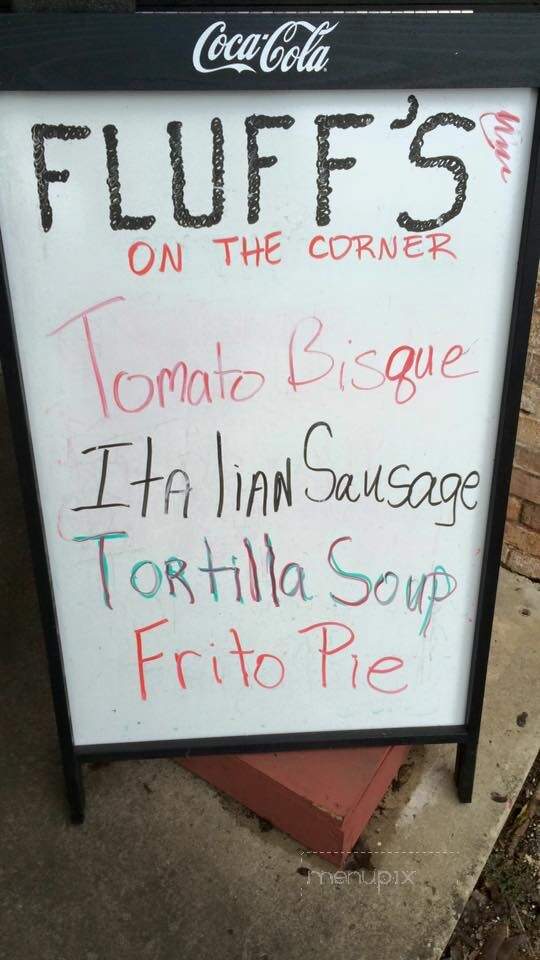 Coca-Cola
FLUFF'S
ON THE CORNER
Tomato Bisque
ItAliAN Sausage
TORtilla Soup
Frito Pie
menupix